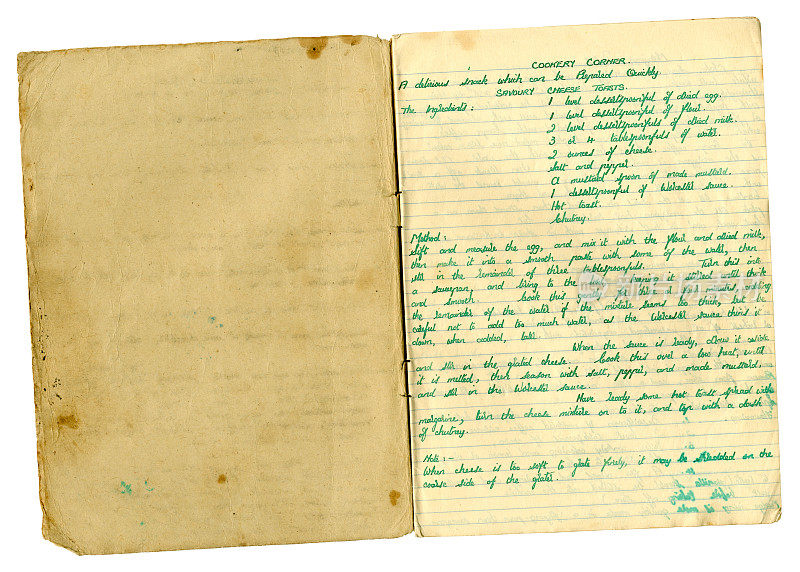 COOKERY CORNER.
A delicious snack which can be Prepared Quickly.
SAVOURY CHEESE TOASTS.
The Ingredients:
1 level dessertspoonful of dried egg.
1 level dessertspoonful of flour.
2 level dessertspoonfuls of dried milk.
3 or 4 tablespoonfuls of water.
2 ounces of cheese.
Salt and pepper.
A mustard spoon of made mustard.
1 dessertspoonful of Worcester sauce.
Hot toast.
Chutney.
Method:
Sift and measure the egg, and mix it with the flour and dried milk,
then make it into a smooth paste with some of the water, then
stir in the remainder of three tablespoonfuls. Turn this into
a saucepan, and bring to the boil, keeping it stirred until thick
and smooth. Cook this for two minutes, adding
the remainder of the water if the mixture seems too thick, but be
careful not to add too much water, as the Worcester sauce thins it
down, when added, later.
When the sauce is ready, draw it aside
and stir in the grated cheese. Cook this over a low heat, until
it is melted, then season with salt, pepper, and made mustard,
and stir in the Worcester sauce.
Have ready some hot toast spread with
margarine, turn the cheese mixture on to it, and top with a dash
of chutney.
Note:-
When cheese is too soft to grate finely, it may be shredded on the
coarse side of the grater.